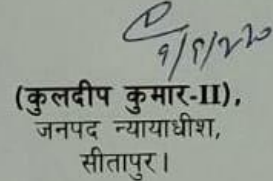 (कुलदीप कुमार-II),
जनपद न्यायाधीश,
सीतापुर।